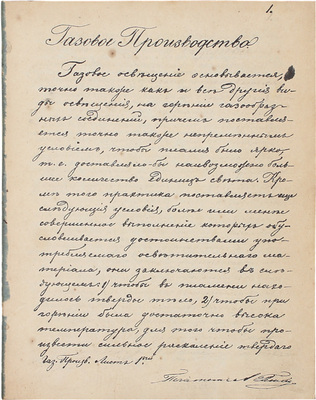 1.
Газовое Производство
Газовое освѣщеніе основывается,
точно такоже какъ и всѣ другіе ви-
ды освѣщенія, на горѣніи газообраз-
ныхъ соединеній, причемъ поставля-
ется точно такоже непремѣннымъ
условіемъ, чтобы пламя было ярко,
т. е. доставляло-бы наивозможно боль-
шее количество единицъ свѣта. Кро-
мѣ того практика поставляетъ еще
слѣдующія условія, болѣе или менѣе
совершенное выполненіе которыхъ обу-
словливается достоинствами упо-
требляемаго освѣтительнаго ма-
теріала, они заключаются въ слѣ-
дующемъ: 1) чтобы въ пламени нахо-
дилось твердое тѣло, 2) чтобы при
горѣніи была достаточно высока
температура, для того чтобы про-
извести сильное раскаленіе твердаго
Газ. Произв. Листъ 1ый